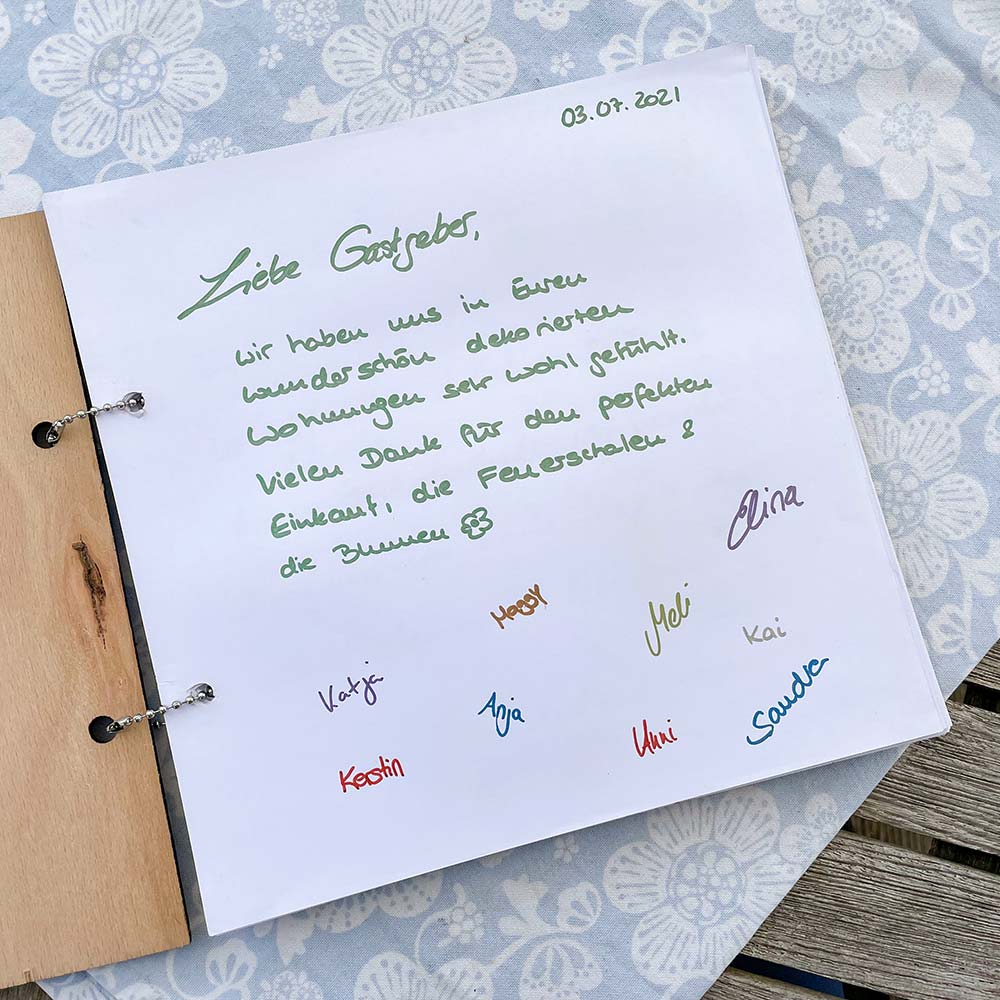 03.07.2021
Liebe Gastgeber,
wir haben uns in Euren
wunderschön dekorierten
Wohnungen sehr wohl gefühlt.
Vielen Dank für den perfekten
Einkauf, die Feuerschalen &
die Blumen
Elina
Maggy
Meli
Kai
Katja
Anja
Unni
Sandra
Kerstin